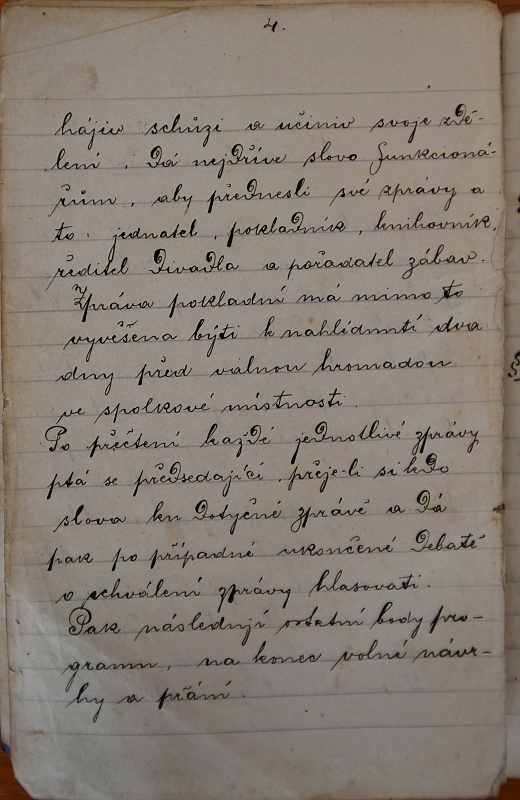 4.
hájiv schůzi a učiniv svoje zdě-
lení, dá nejdříve slovo funkcioná-
řům, aby přednesli své zprávy a
to: jednatel, pokladník, knihovník,
ředitel divadla a pořadatel zábav.
Zpráva pokladní má mimo to
vyvěšena býti k nahlédnutí dva
dny před valnou hromadou
ve spolkové místnosti.
Po přečtení každé jednotlivé zprávy
ptá se předsedající, přeje-li si kdo
slova ku dotyčné zprávě a dá
pak po případné ukončené debatě
o schválení zprávy hlasovati.
Pak následují ostatní body pro-
gramu, na konec volné návr-
hy a přání.